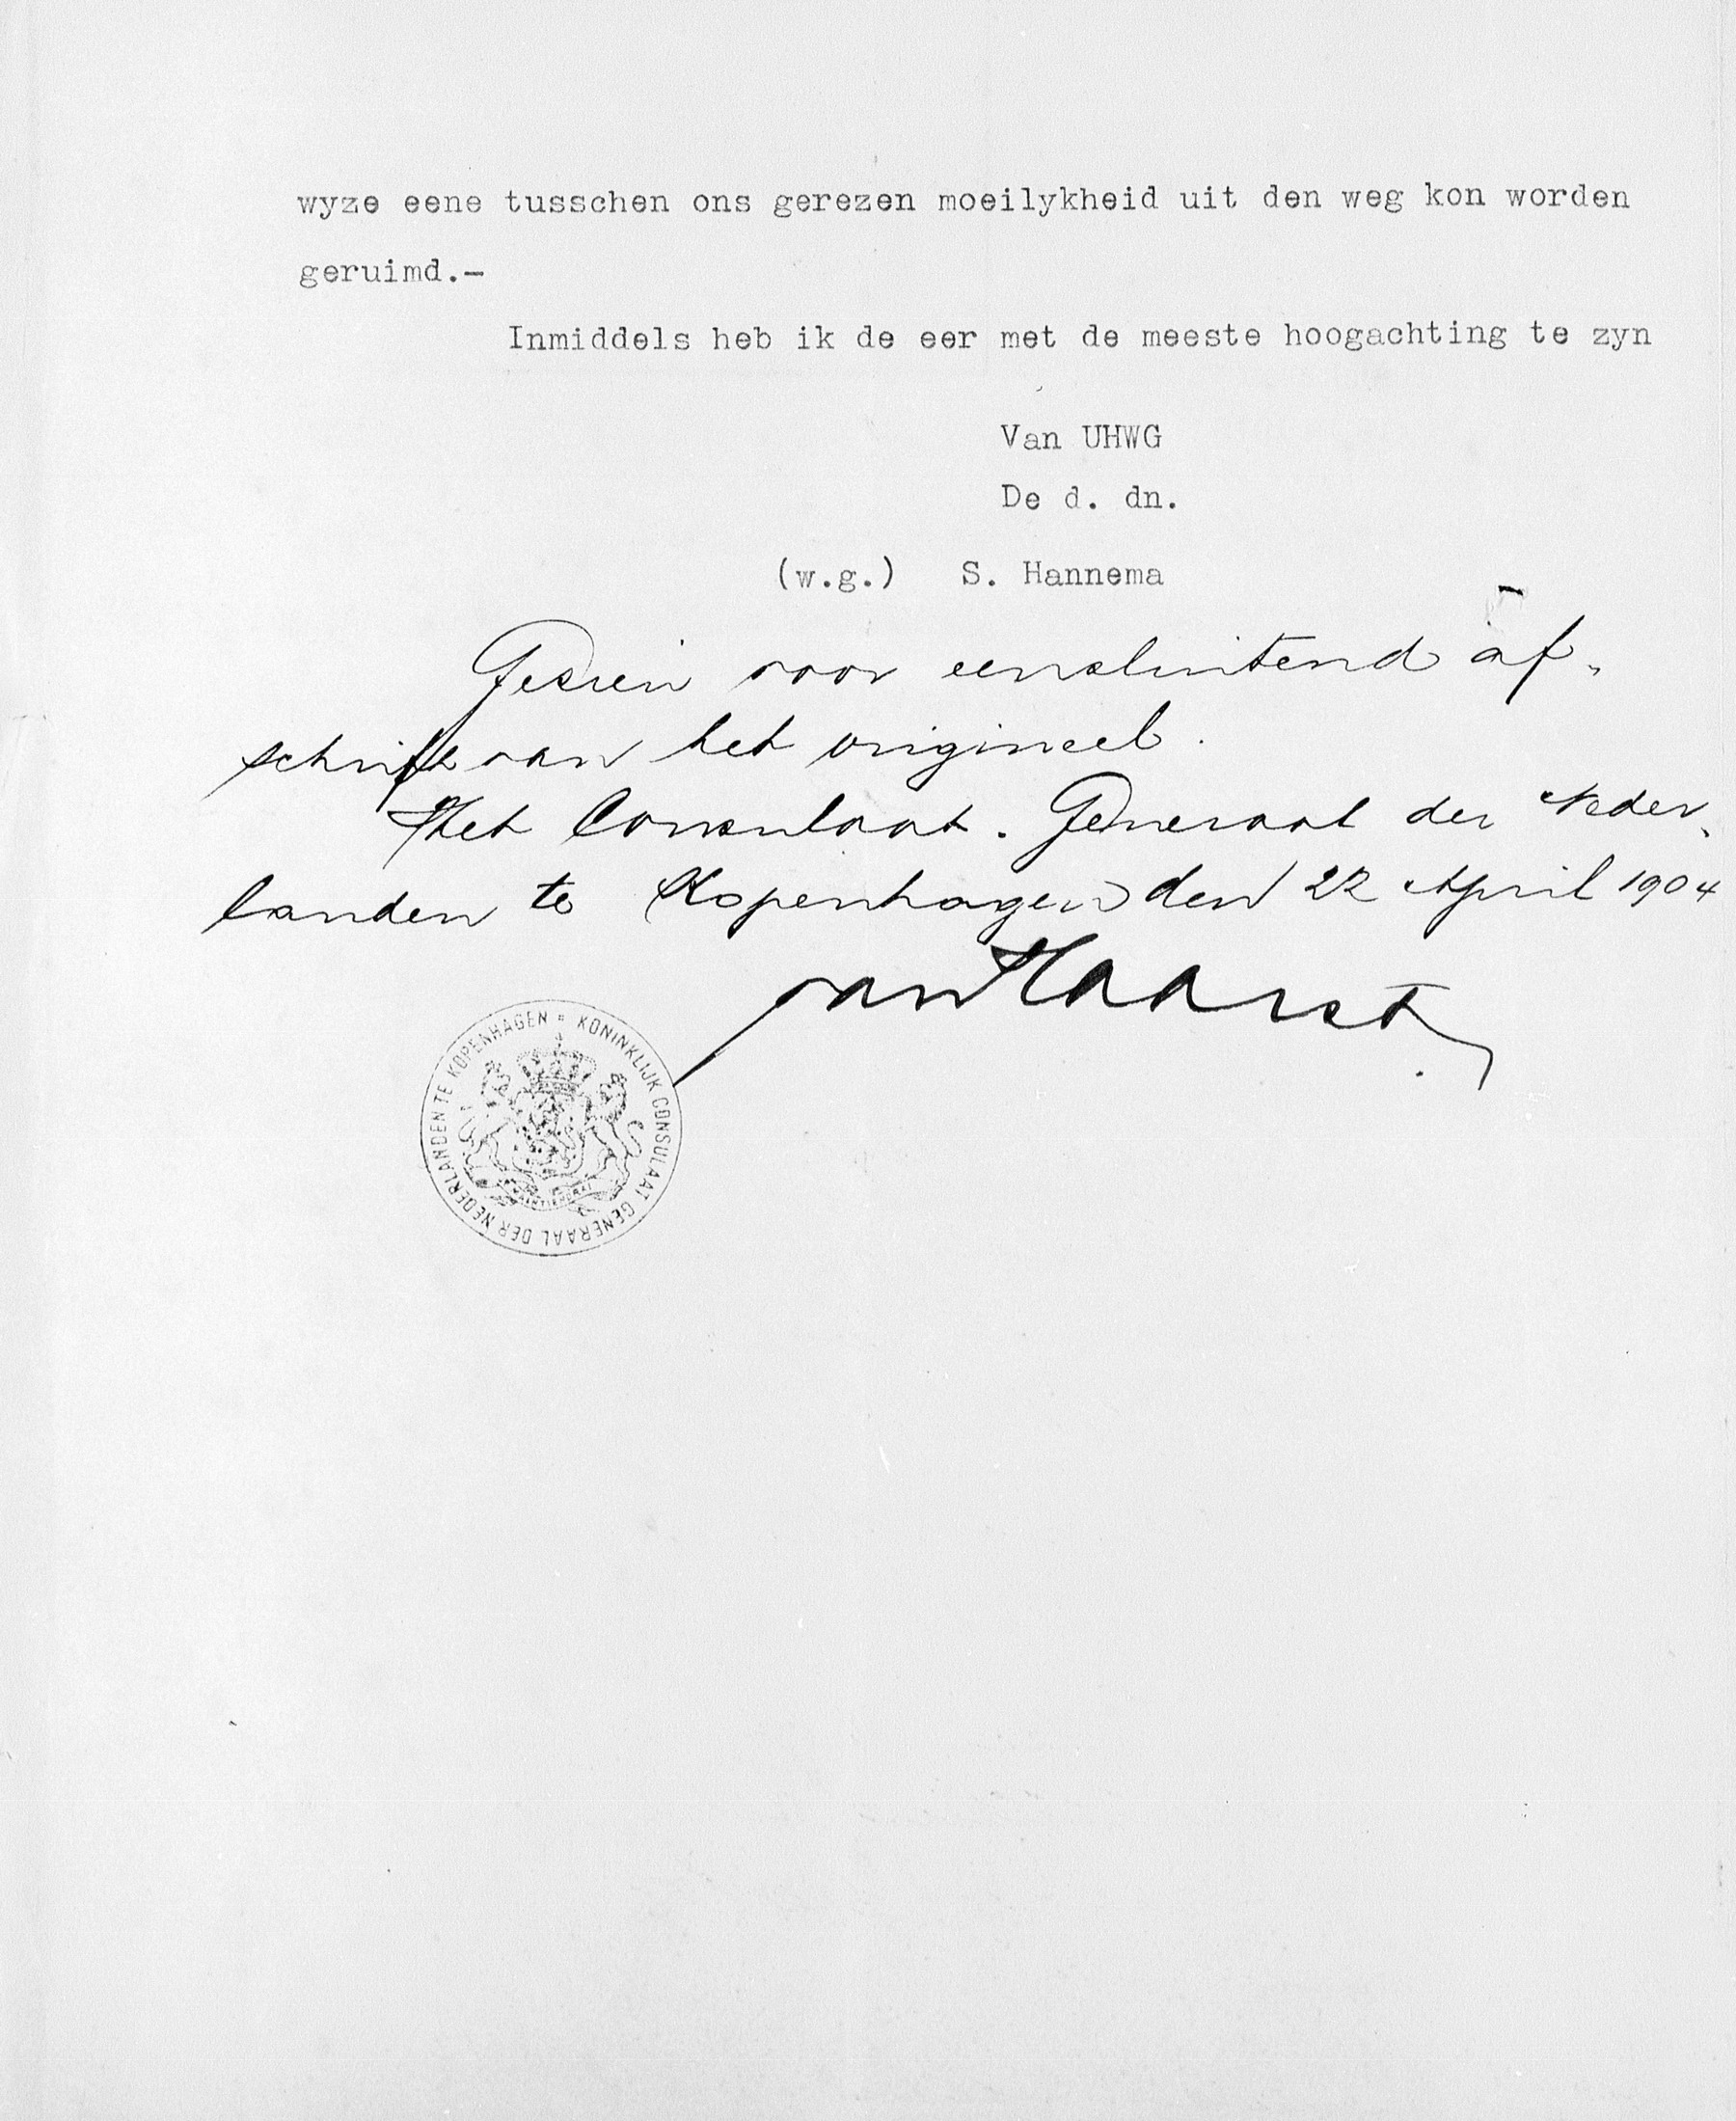 wyze eene tusschen ons gerezen moeilykheid uit den weg kon worden
geruimd.—
Inmiddels heb ik de eer met de meeste hoogachting te zyn
Van UHWG
De d. dn.
(w.g.) S. Hannema
Gezien voor eensluitend af-
schrift van het origineel.
Het Consulaat. Generaal der Neder-
landen te Kopenhagen den 22 April 1904
van Haarst
KONINKLIJK CONSULAAT GENERAAL DER NEDERLANDEN TE KOPENHAGEN